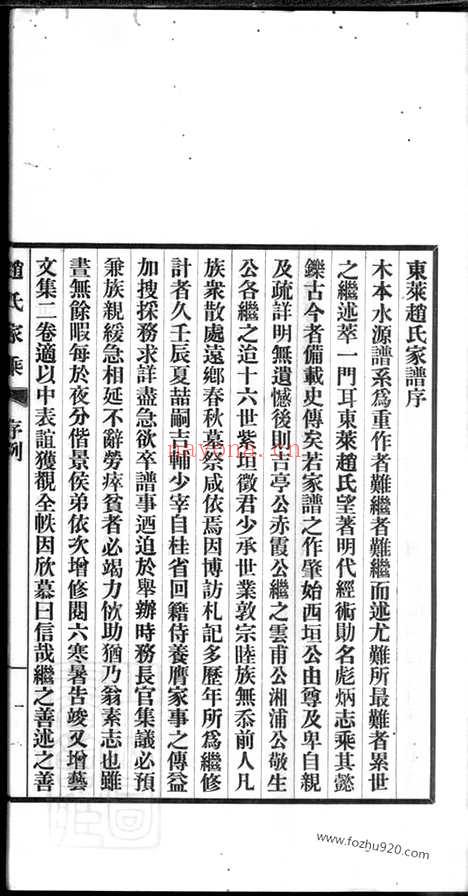 東萊趙氏家譜序
木本水源譜系爲重作者難繼者難繼而述尤難所最難者累世
之繼述萃一門耳東萊趙氏望著明代經術勛名彪炳志乘其懿
鑠古今者備載史傳矣若家譜之作肇始西垣公由尊及卑自親
及疏詳明無遺憾後則吉亭公赤霞公繼之雲甫公湘浦公敬生
公各繼之迨十六世紫垣徵君少承世業敦宗睦族無忝前人凡
族衆散處遠鄉春秋墓祭咸依焉因博訪札記多歷年所爲繼修
計者久壬辰夏喆嗣吉輔少宰自桂省回籍侍養膺家事之傳益
加搜採務求詳盡急欲卒譜事迺迫於舉辦時務長官集議必預
兼族親緩急相延不辭勞瘁貧者必竭力佽助猶乃翁素志也雖
晝無餘暇每於夜分偕景侯弟依次增修閱六寒暑告竣又增藝
文集二卷適以中表誼獲觀全帙因欣慕曰信哉繼之善述之善
趙氏家乘
序例
一
nayona.cn
www.fozhu920.com